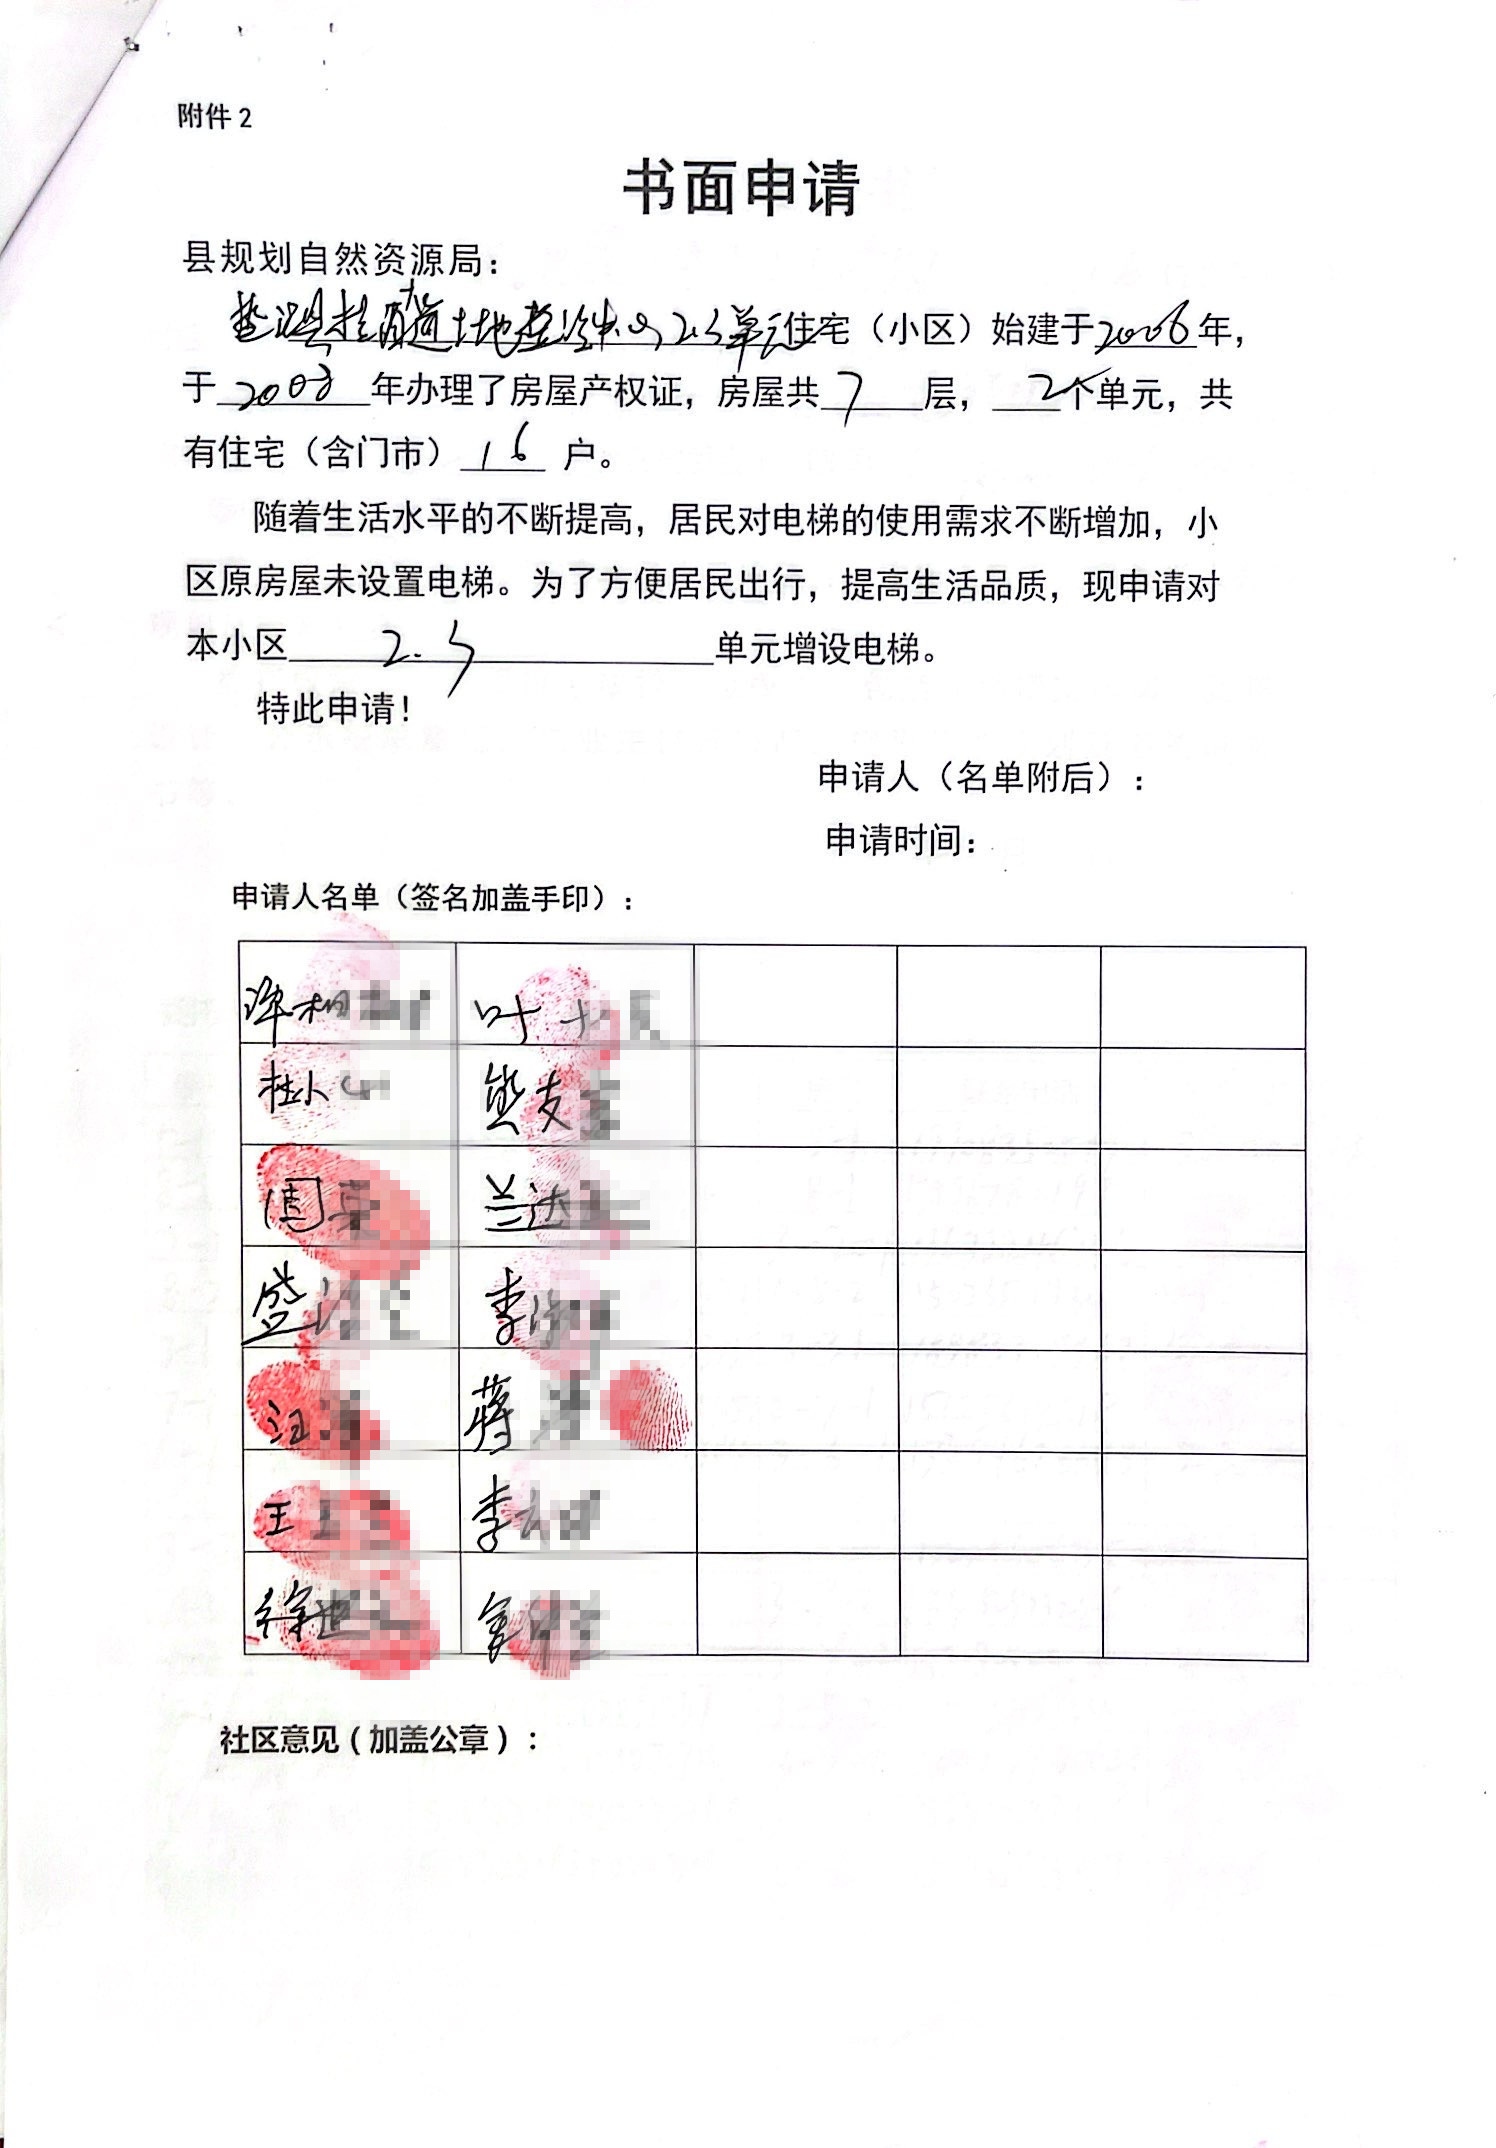 附件2
书面申请
县规划自然资源局：
土地整治中心2.3单元住宅（小区）始建于2006年，
于2008年办理了房屋产权证，房屋共7层，2个单元，共
有住宅（含门市）16户。
随着生活水平的不断提高，居民对电梯的使用需求不断增加，小
区原房屋未设置电梯。为了方便居民出行，提高生活品质，现申请对
本小区2.3单元增设电梯。
特此申请！
申请人（名单附后）：
申请时间：
申请人名单（签名加盖手印）：
叶
杜小 熊友
周 兰达
盛 李
汪 蒋
王 李
徐世
社区意见（加盖公章）：